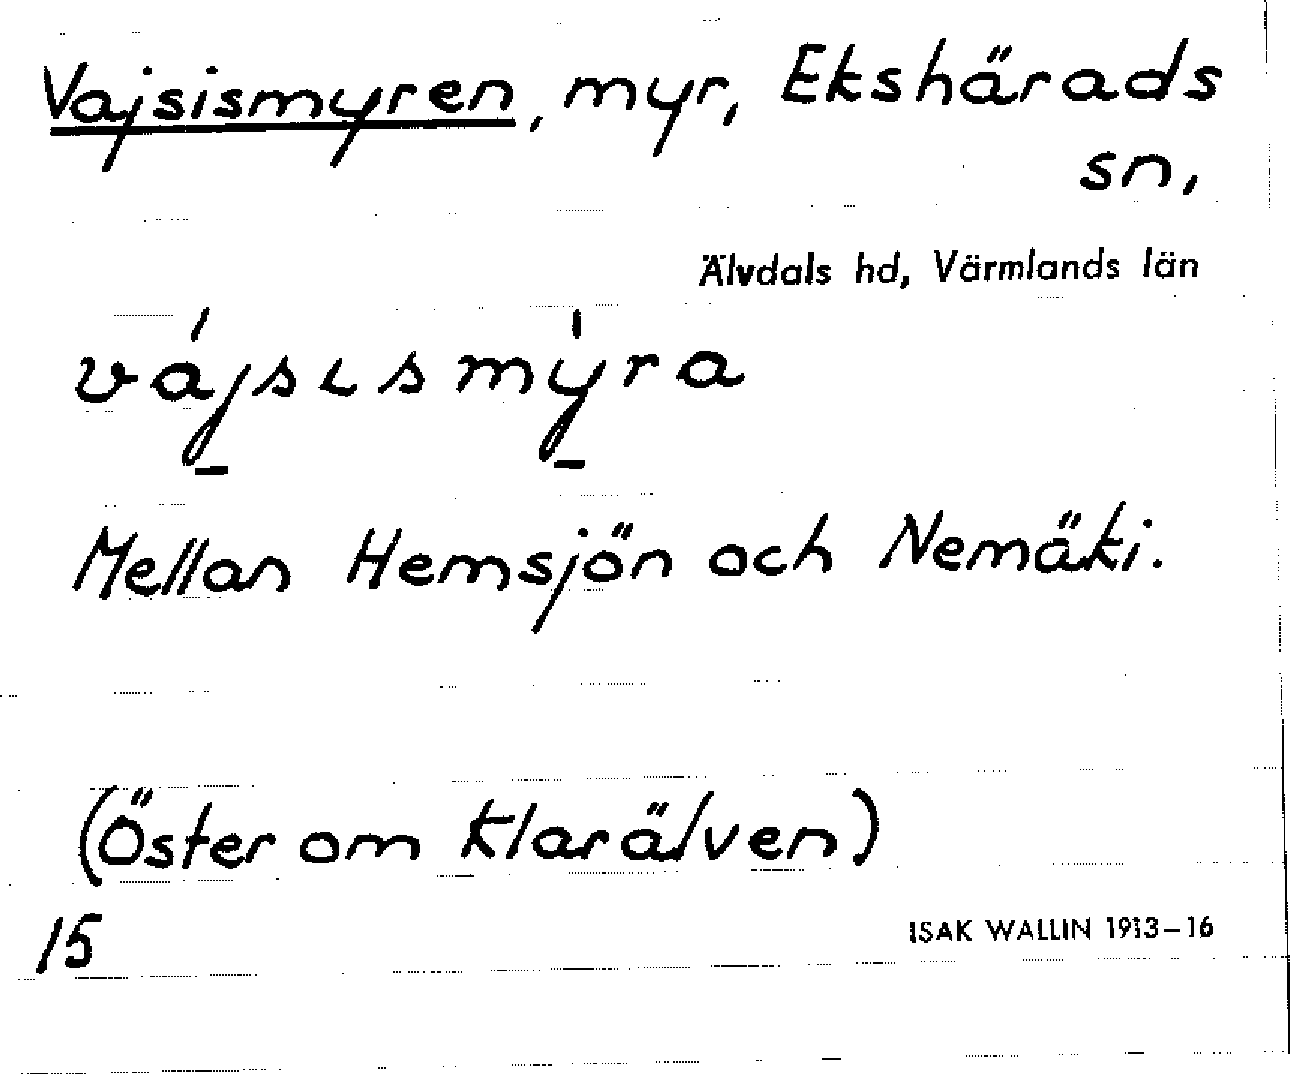 Vajsismyren, myr, Ekshärads
sn,
Älvdals hd, Värmlands län
vájsısmy̍ra
Mellan Hemsjön och Nemäki.
(Öster om Klarälven)
15
ISAK WALLIN 1913-16